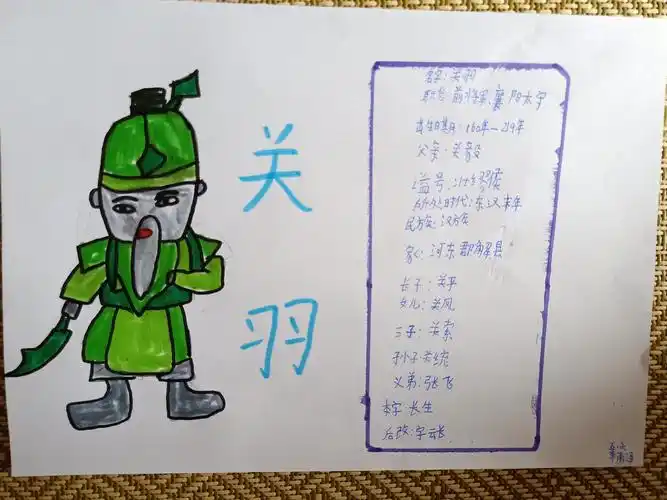 关
羽
名字:关羽
职位:前将军、襄阳太守
出生日期:160年—219年
父亲:关毅
谥号:壮缪侯
所处时代:东汉末年
民族:汉族
家乡:河东郡解县
长子:关平
女儿:关凤
三子:关索
孙子关统
义弟:张飞
本字:长生
后改:字云长